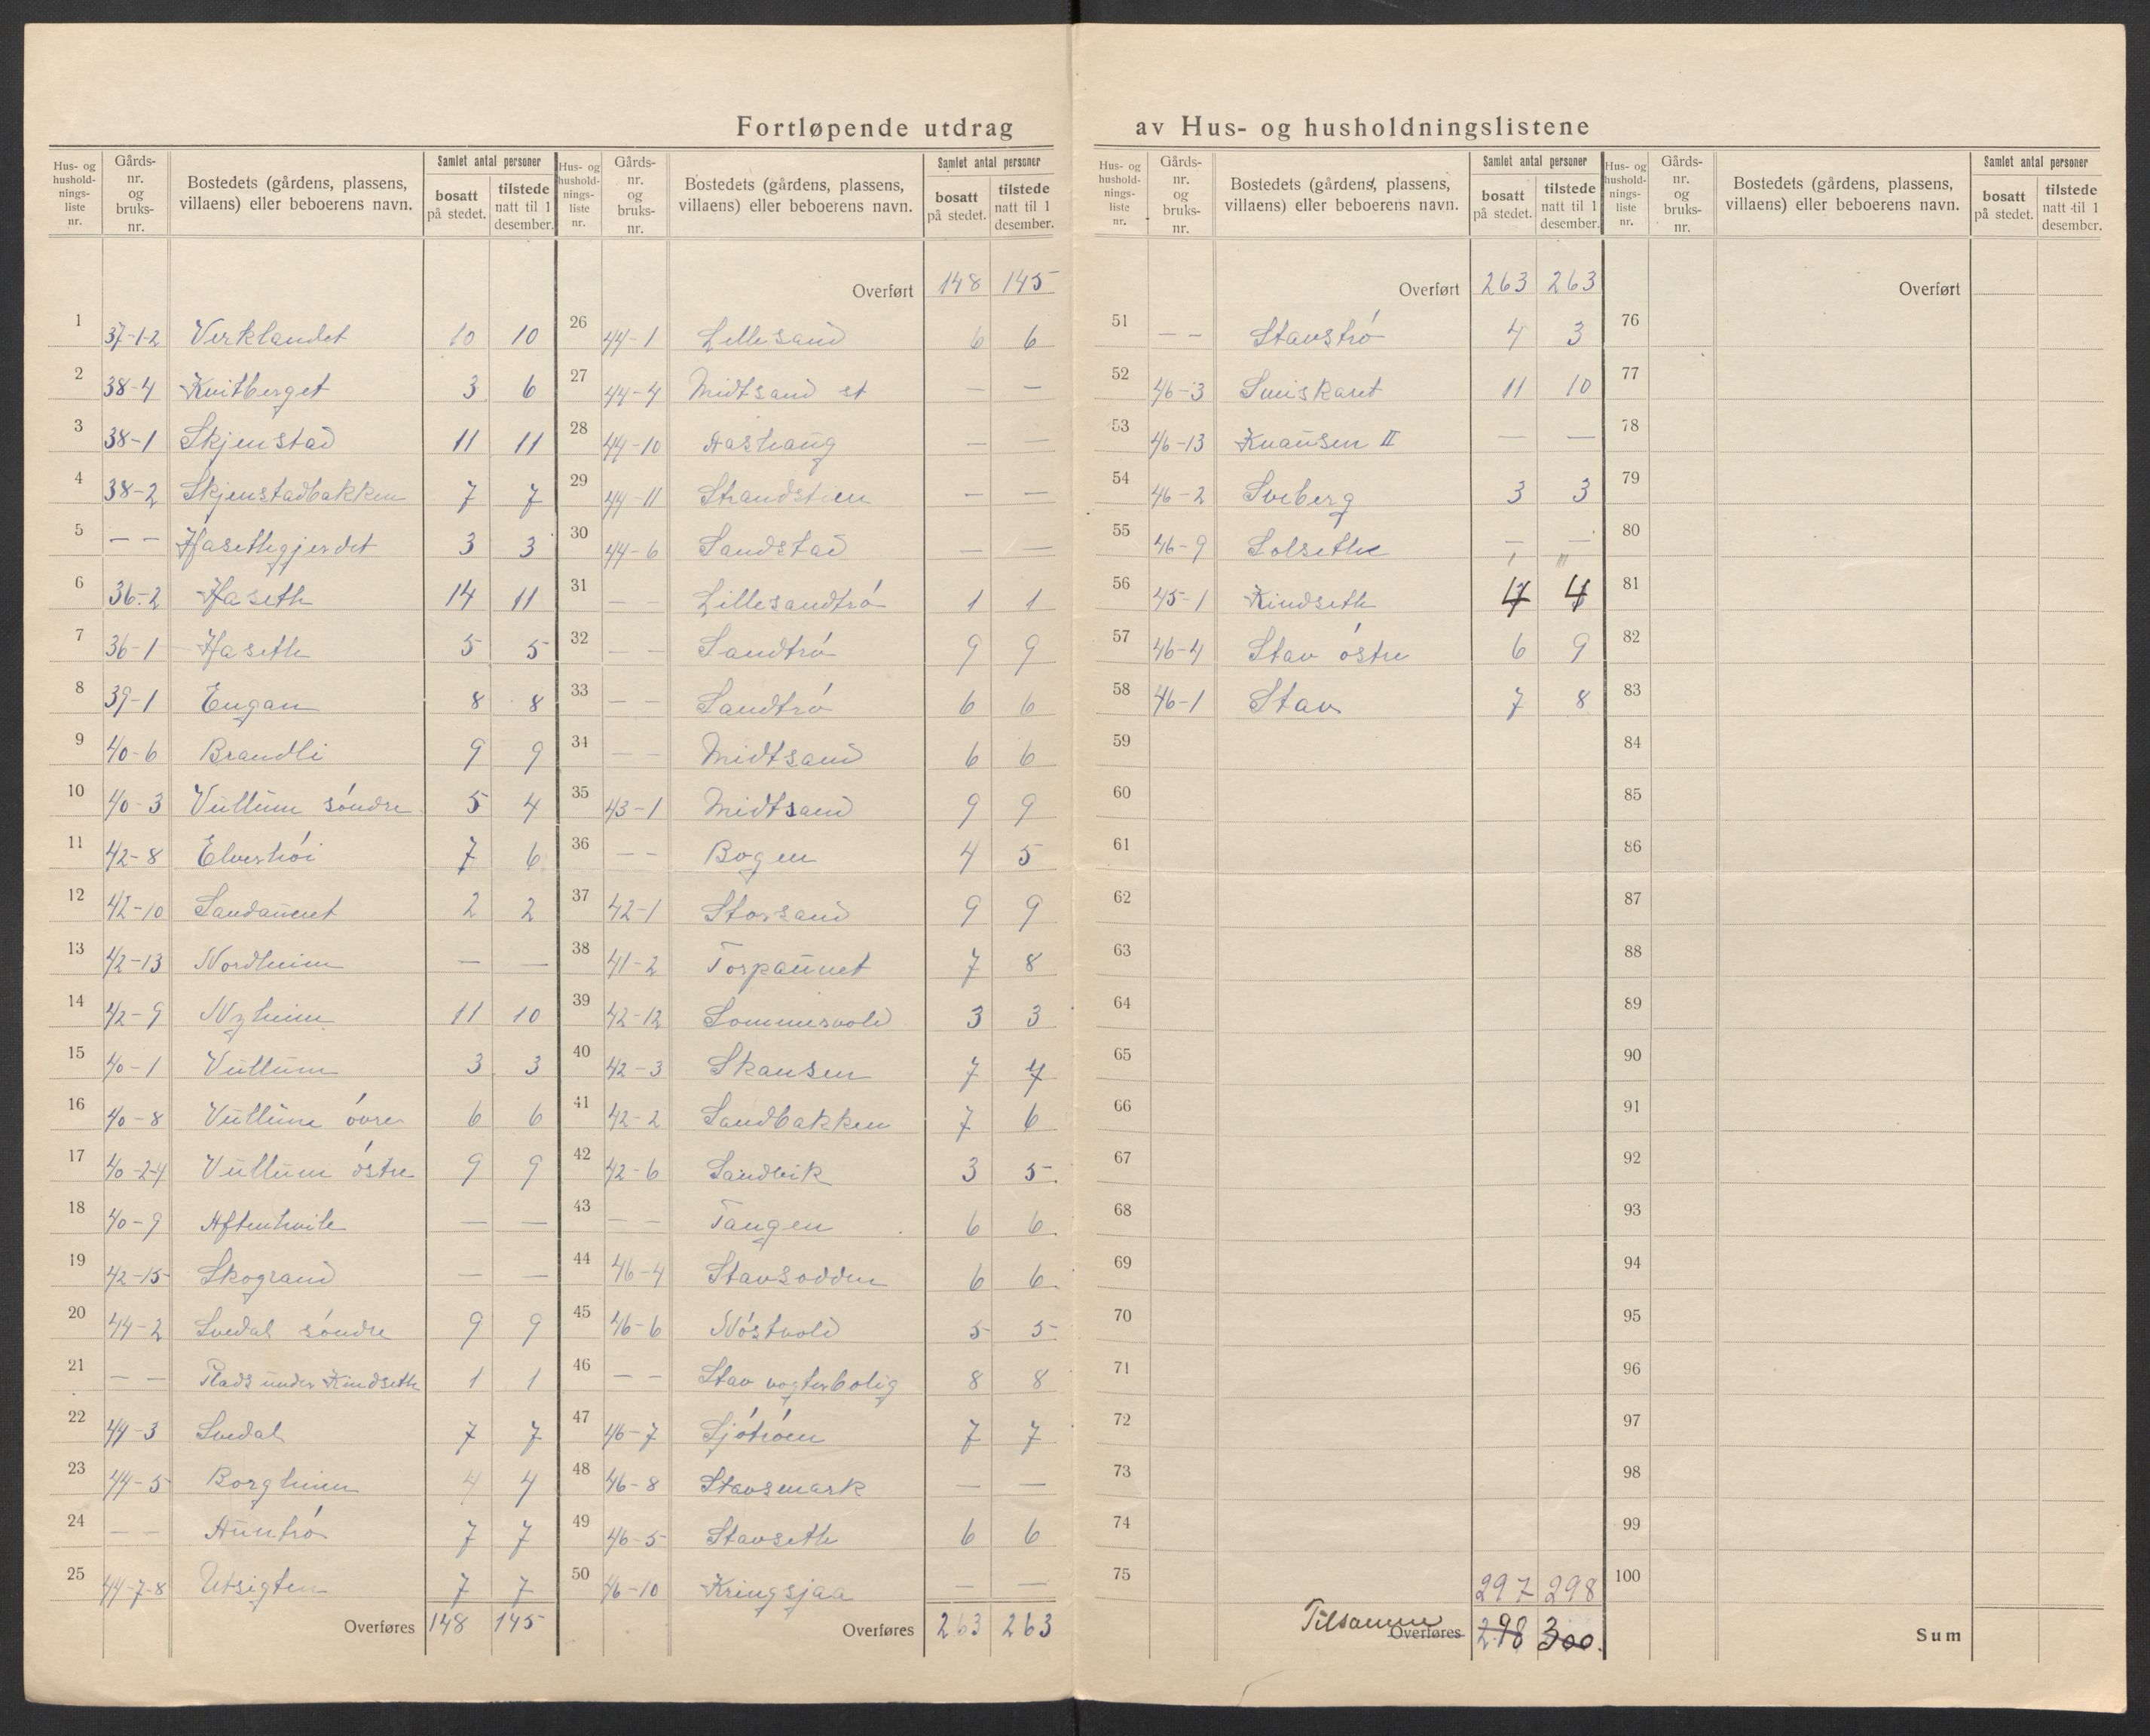 Fortløpende utdrag av Hus- og husholdningslistene
Hus- og husholdnings-liste nr. | Gårds-nr. og bruks-nr. | Bostedets (gårdens, plassens, villaens) eller beboerens navn. | Samlet antal personer: bosatt på stedet. | tilstede natt til 1 desember.
1 37-1-2 Verklandet 10 10
2 38-4 Kvitberget 3 6
3 38-1 Skjenstad 11 11
4 38-2 Skjenstadbakken 7 7
5 — — Hasethgjerdet 3 3
6 36-2 Haseth 14 11
7 36-1 Haseth 5 5
8 39-1 Engan 8 8
9 40-6 Brandli 9 9
10 40-3 Vullum söndre 5 4
11 42-8 Elvershöi 7 6
12 42-10 Sandaunet 2 2
13 42-13 Nordheim — —
14 42-9 Nyheim 11 10
15 40-1 Vullum 3 3
16 40-8 Vullum övre 6 6
17 40-2-4 Vullum östre 9 9
18 40-9 Aftenhvile — —
19 42-15 Skogrand — —
20 44-2 Svedal söndre 9 9
21 — — Plads under Kindseth 1 1
22 44-3 Svedal 7 7
23 44-5 Borgheim 4 4
24 — — Auntrö 7 7
25 44-7-8 Utsigten 7 7
Overføres 148 145
Hus- og husholdnings-liste nr. | Gårds-nr. og bruks-nr. | Bostedets (gårdens, plassens, villaens) eller beboerens navn. | Samlet antal personer: bosatt på stedet. | tilstede natt til 1 desember.
Overført 148 145
26 44-1 Lillesand 6 6
27 44-4 Midtsand st — —
28 44-10 Aashaug — —
29 44-11 Strandstien — —
30 44-6 Sandstad — —
31 — — Lillesandtrö 1 1
32 — — Sandtrö 9 9
33 — — Sandtrö 6 6
34 — — Midtsand 6 6
35 43-1 Midtsand 9 9
36 — — Bogen 4 5
37 42-1 Storsand 9 9
38 41-2 Torpaunet 7 8
39 42-12 Sommervold 3 3
40 42-3 Skansen 7 7
41 42-2 Sandbakken 7 6
42 42-6 Sandvik 3 5
43 — — Tangen 6 6
44 46-4 Stavsodden 6 6
45 46-6 Nöstvold 5 5
46 — — Stav vogterbolig 8 8
47 46-7 Sjötröen 7 7
48 46-8 Stavsmark — —
49 46-5 Stavseth 6 6
50 46-10 Kringsjaa — —
Overføres 263 263
Hus- og husholdnings-liste nr. | Gårds-nr. og bruks-nr. | Bostedets (gårdens, plassens, villaens) eller beboerens navn. | Samlet antal personer: bosatt på stedet. | tilstede natt til 1 desember.
Overført 263 263
51 — — Stavströ 4 3
52 46-3 Smiskaret 11 10
53 46-13 Knausen II — —
54 46-2 Sveberg 3 3
55 46-9 Solseth — —
56 45-1 Kindseth 4 4
57 46-4 Stav östre 6 9
58 46-1 Stav 7 8
59
60
61
62
63
64
65
66
67
68
69
70
71
72
73
74
75
297 298
Tilsammen Overføres 298 300.
Hus- og husholdnings-liste nr. | Gårds-nr. og bruks-nr. | Bostedets (gårdens, plassens, villaens) eller beboerens navn. | Samlet antal personer: bosatt på stedet. | tilstede natt til 1 desember.
Overført
76
77
78
79
80
81
82
83
84
85
86
87
88
89
90
91
92
93
94
95
96
97
98
99
100
Sum